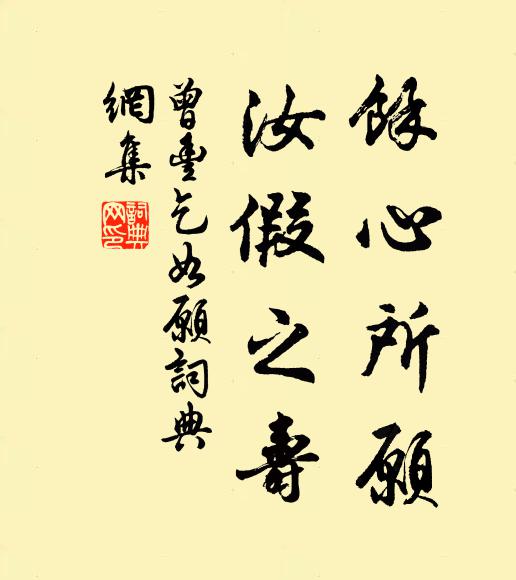 餘心所願
汝假之壽
曾豐乞如願詞典
網集
詞典
网印